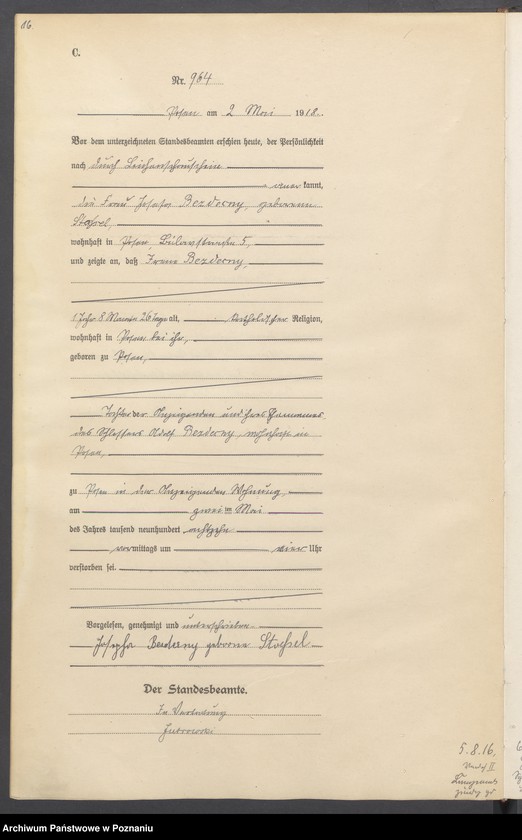 16.
C.
Nr. 964
Posen am 2 Mai 1918.
Vor dem unterzeichneten Standesbeamten erschien heute, der Persönlichkeit
nach durch Leichenschauschein
aner kannt,
die Frau Josepha Bezderny, geborene
Stachel,
wohnhaft in Posen, Bülowstraße 5,
und zeigte an, daß Irene Bezderny,
1 Jahr 8 Monate 26 Tage alt, katholischer Religion,
wohnhaft in Posen bei ihr,
geboren zu Posen,
Tochter der Anzeigenden und ihres Ehemannes
des Schlossers Adolf Bezderny, wohnhaft in
Posen,
zu Posen in der Anzeigenden Wohnung,
am zwei ten Mai
des Jahres tausend neunhundert achtzehn
vormittags um vier Uhr
verstorben sei.
Vorgelesen, genehmigt und unterschrieben
Josepha Bezderny geborene Stachel
Der Standesbeamte.
In Vertretung
5.8.16,
II
Archiwum Państwowe w Poznaniu